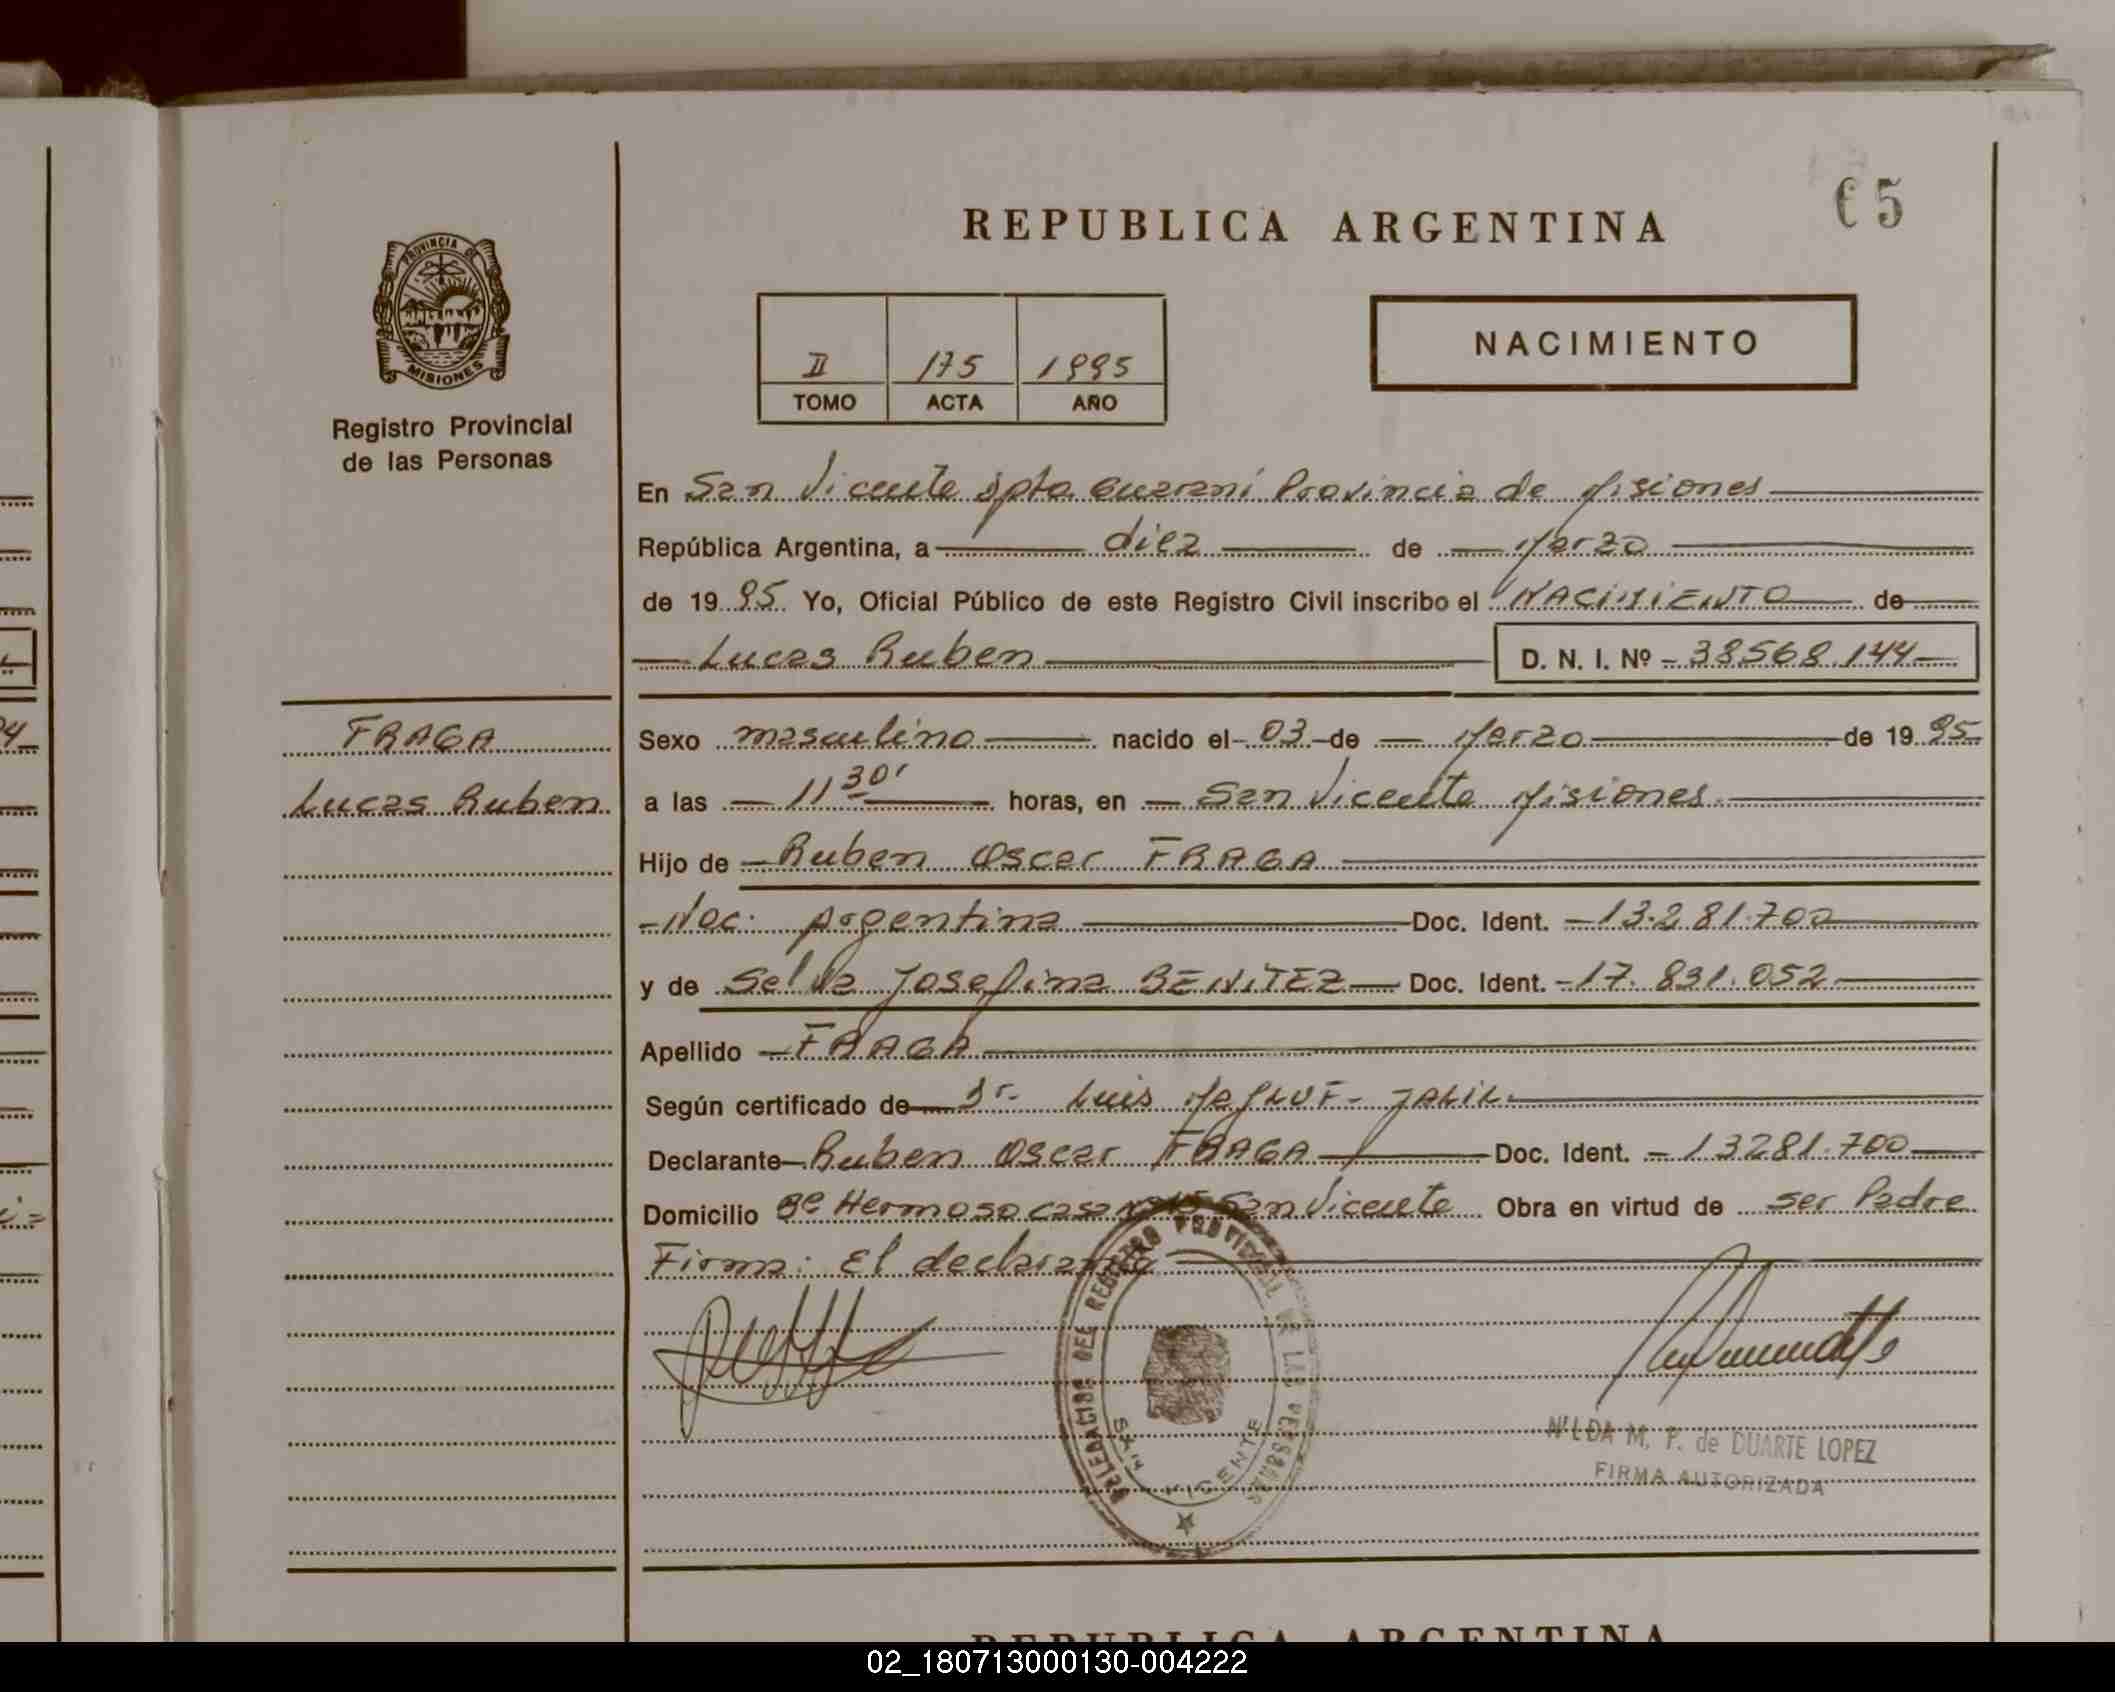 65
REPUBLICA ARGENTINA
PROVINCIA DE
MISIONES
Registro Provincial
de las Personas
II 175 1995
TOMO ACTA AÑO
NACIMIENTO
En San Vicente Dpto Guaraní Provincia de Misiones
República Argentina, a diez de Marzo
de 1995 Yo, Oficial Público de este Registro Civil inscribo el NACIMIENTO de
Lucas Ruben D. N. I. Nº 38568.144
FRAGA
Lucas Ruben
Sexo masculino nacido el 03 de Marzo de 1995
a las 11 30' horas, en San Vicente Misiones
Hijo de Ruben Oscar FRAGA
Nac. Argentina Doc. Ident. 13.281.700
y de Selva Josefina BENITEZ Doc. Ident. 17.831.052
Apellido FRAGA
Según certificado de Dr. Luis MAFLUF - JALIL
Declarante Ruben Oscar FRAGA Doc. Ident. 13281.700
Domicilio Bº Hermoso casa nº 15 San Vicente Obra en virtud de ser Padre
Firma: El declarante
DELEGACION DEL REGISTRO PROVINCIAL DE LAS PERSONAS
SAN VICENTE
NILDA M. P. de DUARTE LOPEZ
FIRMA AUTORIZADA
REPUBLICA ARGENTINA
02_180713000130-004222